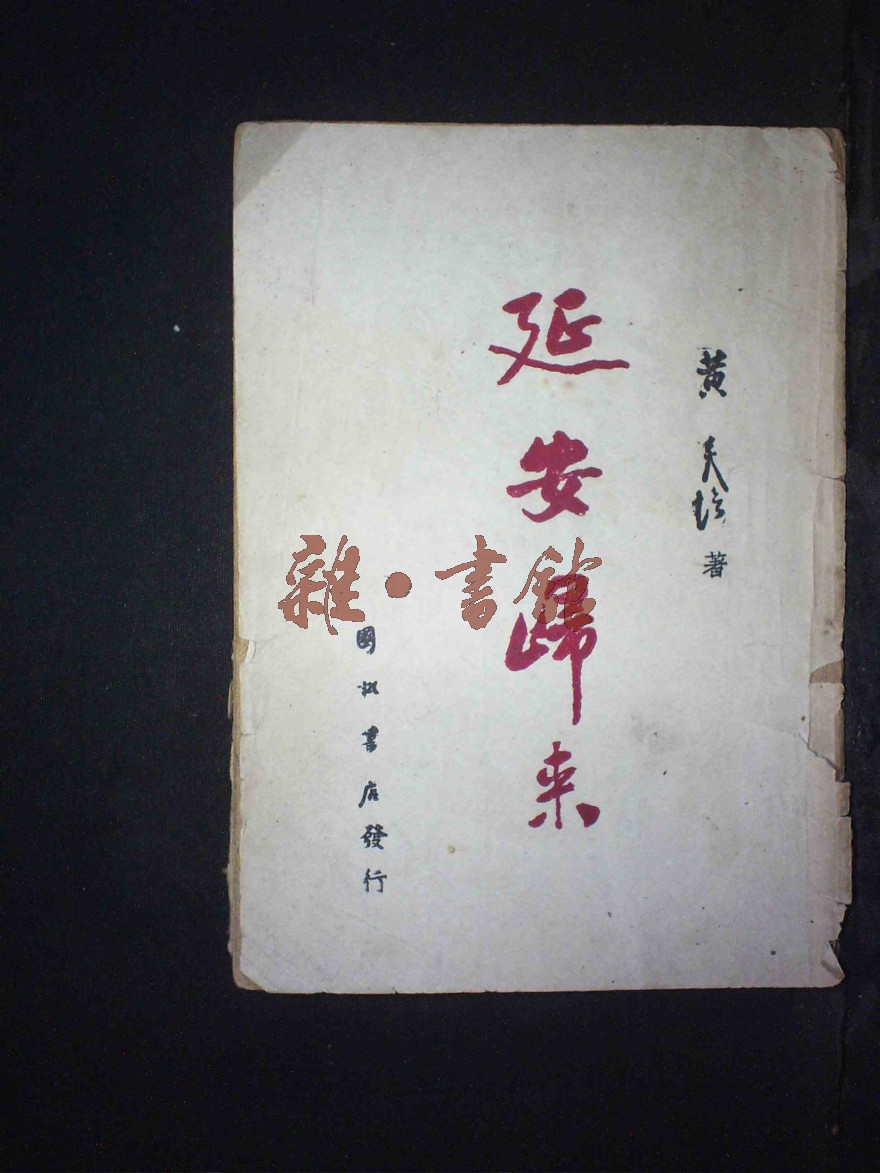 黄炎培著
延安歸来
國訊書店發行
雜·書館